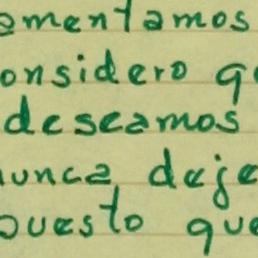 amentamos
onsidero q
deseamos
nunca deje
puesto que